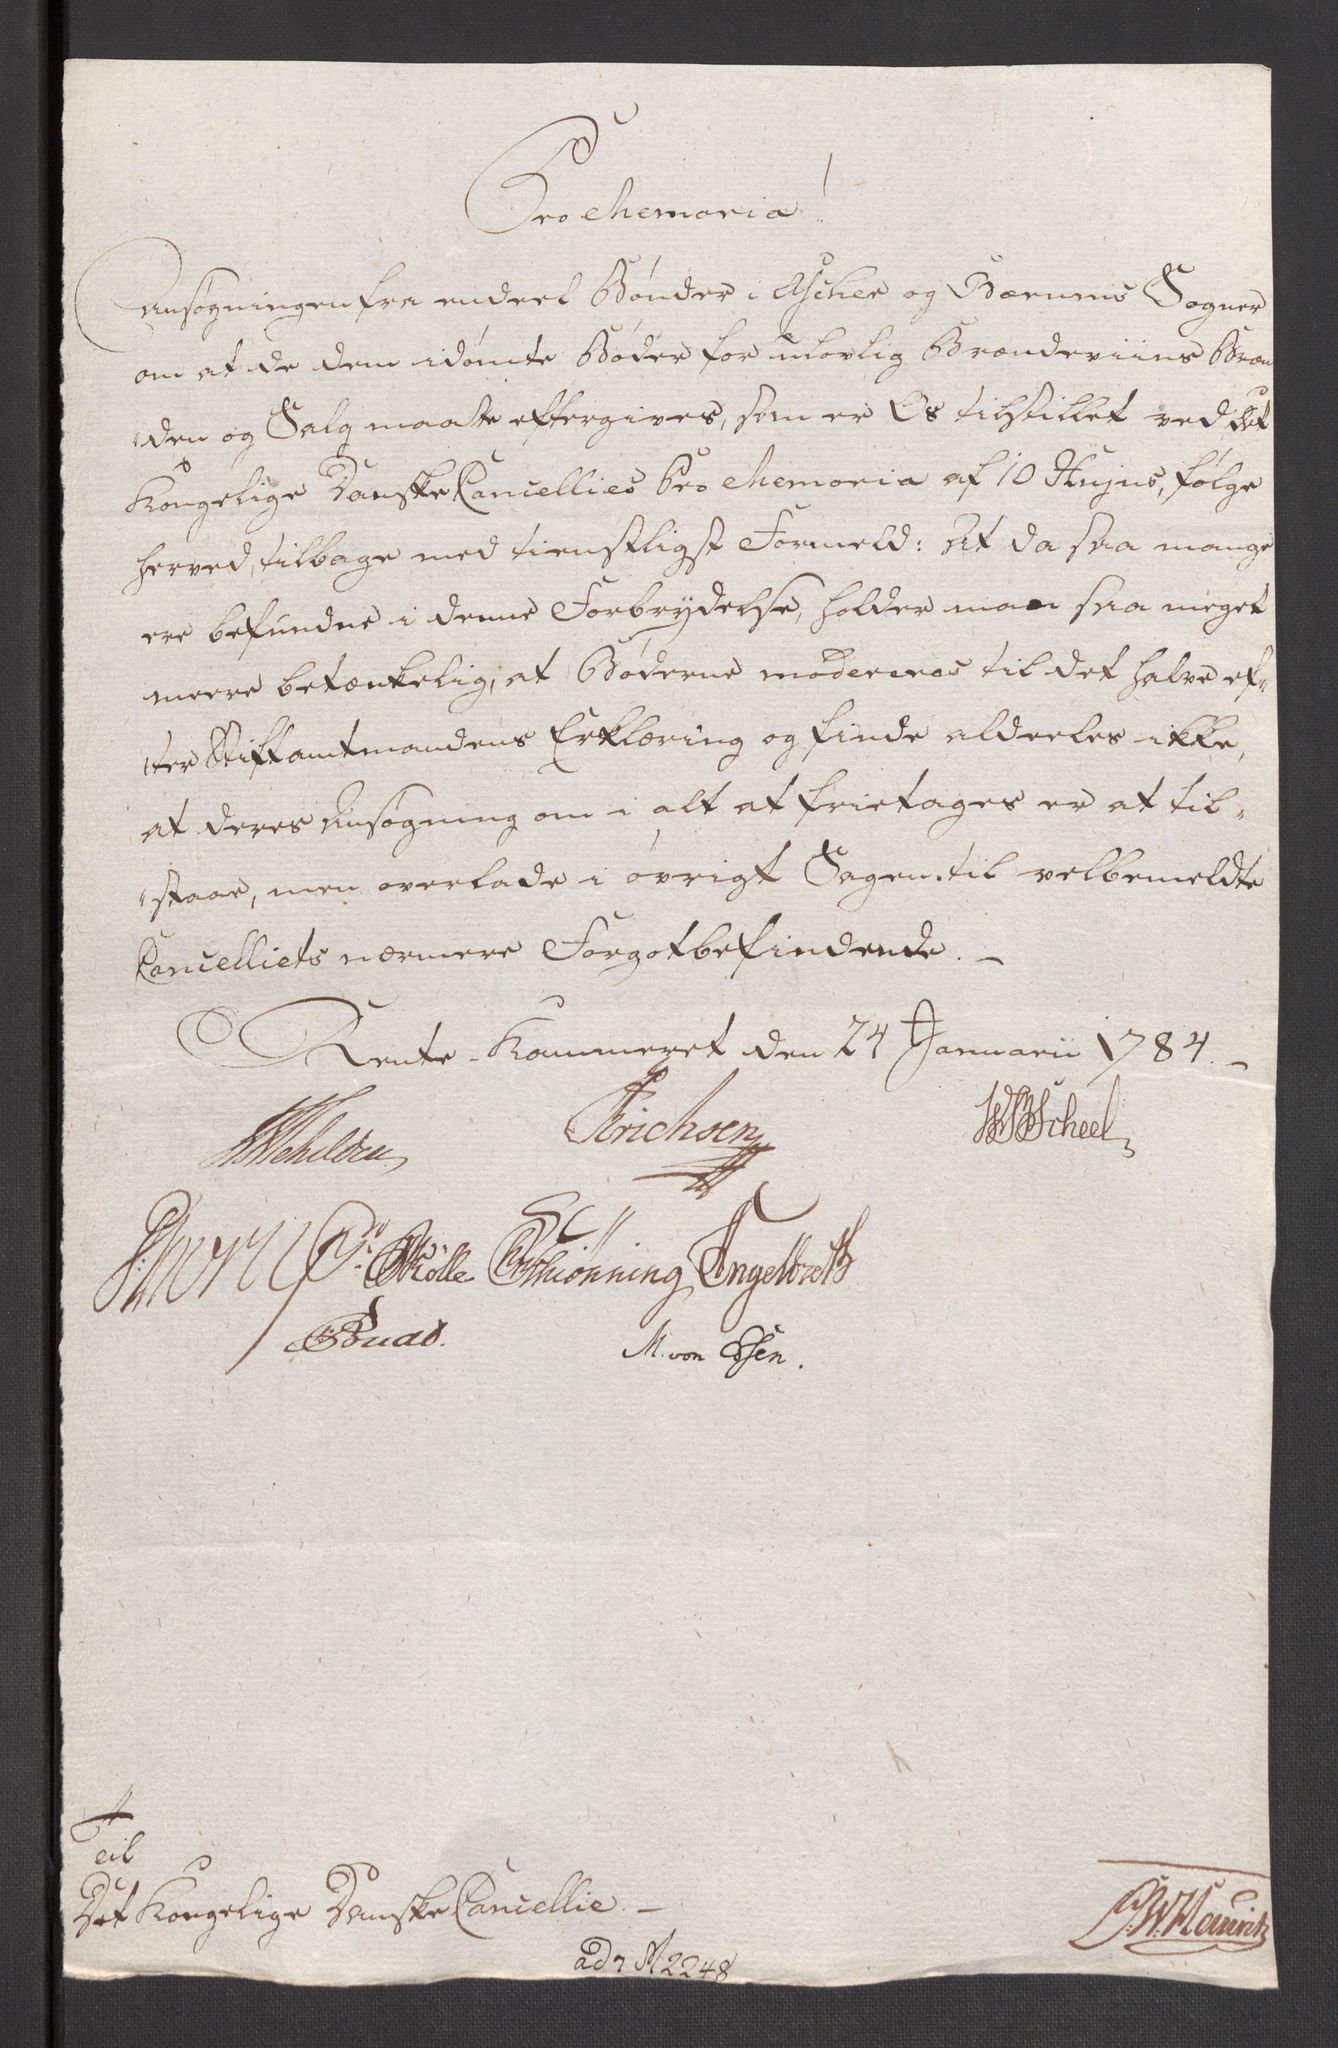 Pro Memoria!
Ansøgningen fra endeel Bønder i Ascher og Bærums Sogner
om at de dem idømte Bøder for ulovlig Brændeviins Bræn
den og Salg maatte eftergives, som er Os tilstillet ved Det
Kongelige Danske Cancellies Pro Memoria af 10 Hujus, følge
herved, tilbage med tienstligst Formeld: At da saa mange
ere befundne i denne Forbrydelse, holder man saa meget
meere betænkelig, at Bøderne modereres til det halve ef-
ter Stiftamtmandens Erklæring og finde alderles ikke,
at deres Ansøgning om i alt at frietages er at til-
staae, men overlade i øvrigt Sagen til velbemeldte
Cancelliets nærmere Forgotbefindende. —
Rente-Kammeret den 24 Januarii 1784. —
Erichsen WScheel
Mølle Schiønning Engelbreth
M. von Essen.
Til
Det Kongelige Danske Cancellie. —
ad N 2248